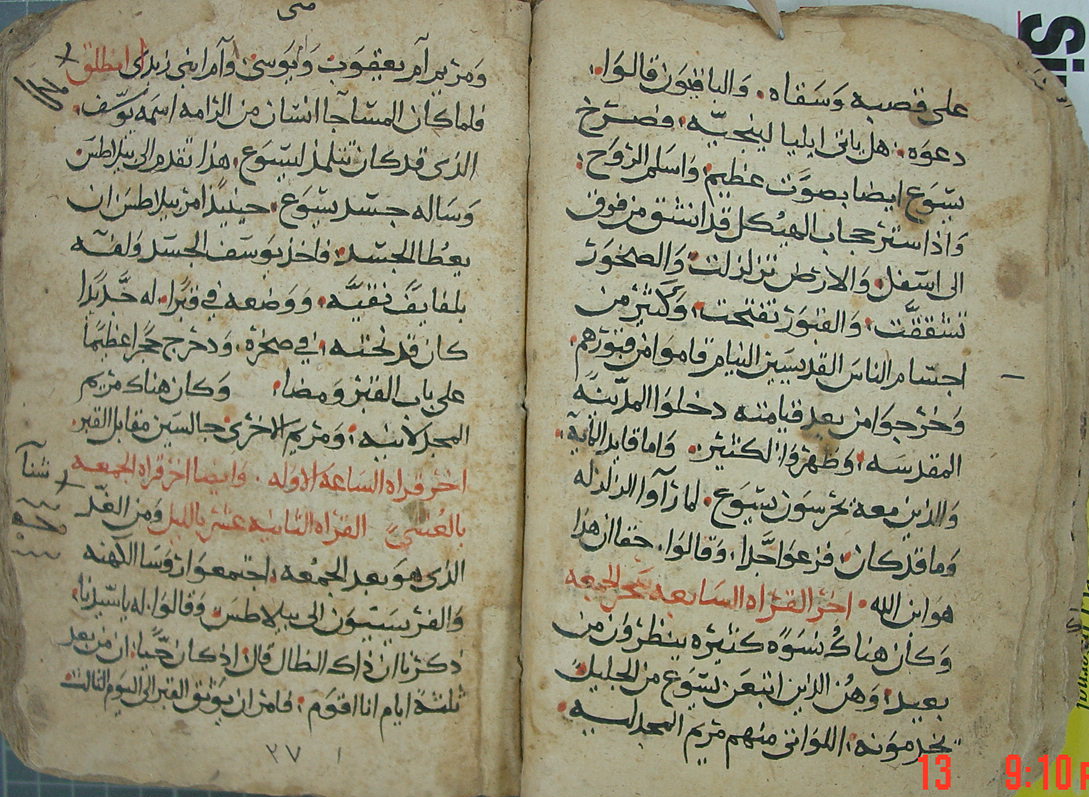 على قصبه وسقاه. والباقيون قالوا.
دعوه. هل ياتى ايليا لينجيه. فصرخ
يسوع ايضا بصوت عظيم واسلم الروح.
واذا ستر حجاب الهيكل قد انشق من فوق
الى اسفل. والارض تزلزلت. والصخور
تشققت. والقبور تفتحت. وكثير من
اجسام الناس القديسين النيام قاموا من قبورهم
وخرجوا من بعد قيامته دخلوا المدينه
المقدسه. وظهروا لكثير. واما قايد المايه.
والذين معه يحرسون يسوع. لما رآوا الزلزله
وما قد كان. فزعوا جدا. وقالوا. حقا ان هذا
هو ابن الله. اخر القراه السابعه سحر الجمعه
وكان هناك نسوه كثيره ينظرون من
بعيد. وهن الذين اتبعن يسوع من الجليل
يخدمونه. اللواتى منهم مريم المجدلسيه.
متى
ومريم آم يعقوب ويوسى. وآم ابنى زبدى انطلق
فلما كان المسآ جا انسان من الرامه اسمه يوسف.
الذى قد كان تتلمذ ليسوع. هذا تقدم الى بيلاطس
وساله جسد يسوع. حينيذ امر بيلاطس ان
يعطا الجسد. فاخذ يوسف الجسد ولفه
بلفايف نقيه. ووضعه فى قبر. له جديدا
كان قد نحته فى صخره. ودحرج حجرا عظيما
على باب القبر ومضا. وكان هناك مريم
المجدلانيه. ومريم الاخرى جالسين مقابل القبر.
اخر قراه الساعه الاوله. وايضا اخر قراه الجمعه
بالعشى القراه الثانيه عشر بالليل ومن الغد
الذى هو بعد الجمعه. اجتمعوا روسا الكهنه
والفريسيون الى بيلاطس وقالوا. له يا سيدنا.
ذكرنا ان ذاك الظال قال اذ كان حيا. ان من بعد
ثلثة ايام انا اقوم. فامر ان يوثق القبر الى اليوم الثالث
٢٧
13 9:10